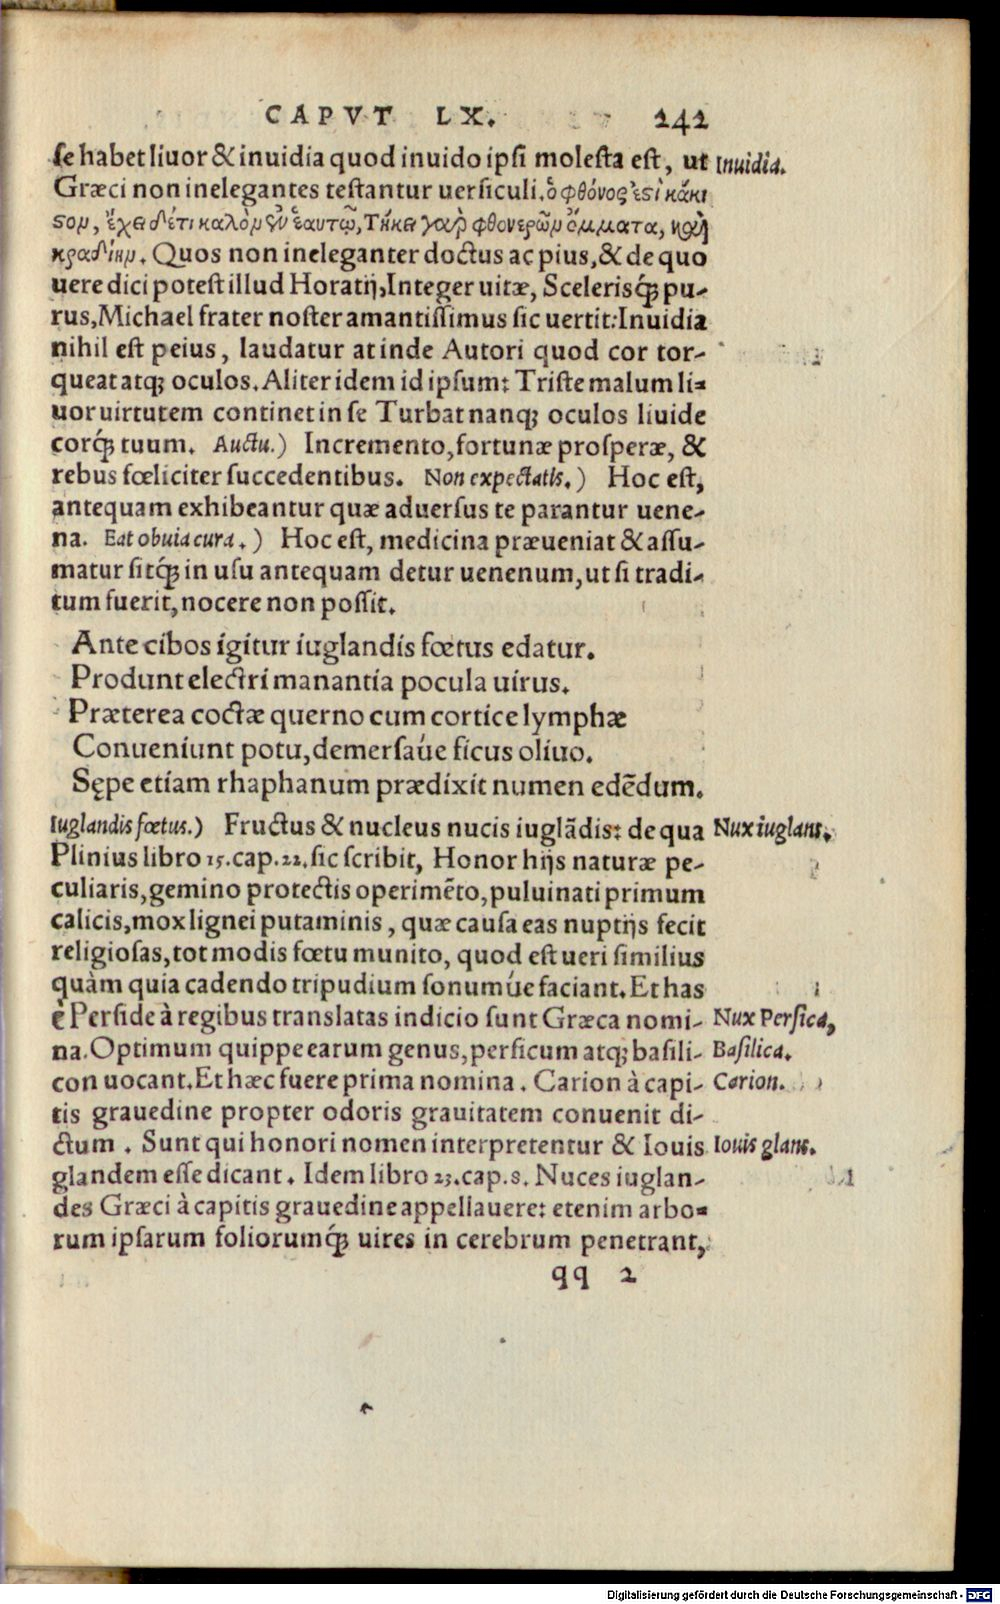 CAPVT LX. 242
se habet liuor & inuidia quod inuido ipsi molesta est, ut Inuidia.
Græci non inelegantes testantur uersiculi. ὁ φθόνος ἐςὶ κάκι
ςον, ἔχει δ' ἔτι καλὸν ἐν ἑαυτῷ, Τήκει γὰρ φθονερῶν ὄμματα, καὶ
κραδίην. Quos non ineleganter doctus ac pius, & de quo
uere dici potest illud Horatij, Integer uitæ, Scelerisq́; pu-
rus, Michael frater noster amantissimus sic uertit: Inuidia
nihil est peius, laudatur at inde Autori quod cor tor-
queat atq; oculos. Aliter idem id ipsum: Triste malum li-
uor uirtutem continet in se Turbat nanq; oculos liuide
corq́; tuum. Auctu.) Incremento, fortunæ prosperæ, &
rebus fœliciter succedentibus. Non expectatis.) Hoc est,
antequam exhibeantur quæ aduersus te parantur uene-
na. Eat obuia cura.) Hoc est, medicina præueniat & assu-
matur sitq́; in usu antequam detur uenenum, ut si tradi-
tum fuerit, nocere non possit.
Ante cibos igitur iuglandis fœtus edatur.
Produnt electri manantia pocula uirus.
Præterea coctæ querno cum cortice lymphæ
Conueniunt potu, demersaúe ficus oliuo.
Sępe etiam rhaphanum prædixit numen edẽdum.
Iuglandis fœtus.) Fructus & nucleus nucis iuglãdis: de qua Nux iuglans.
Plinius libro 15. cap. 22. sic scribit, Honor hijs naturæ pe-
culiaris, gemino protectis operimẽto, puluinati primum
calicis, mox lignei putaminis, quæ causa eas nuptijs fecit
religiosas, tot modis fœtu munito, quod est ueri similius
quàm quia cadendo tripudium sonumúe faciant. Et has
è Perside à regibus translatas indicio sunt Græca nomi- Nux Persica,
na. Optimum quippe earum genus, persicum atq; basili- Basilica.
con uocant. Et hæc fuere prima nomina. Carion à capi- Carion.
tis grauedine propter odoris grauitatem conuenit di-
ctum. Sunt qui honori nomen interpretentur & Iouis Iouis glans.
glandem esse dicant. Idem libro 23. cap. 8. Nuces iuglan-
des Græci à capitis grauedine appellauere: etenim arbo-
rum ipsarum foliorumq́; uires in cerebrum penetrant,
qq 2
Digitalisierung gefördert durch die Deutsche Forschungsgemeinschaft - DFG